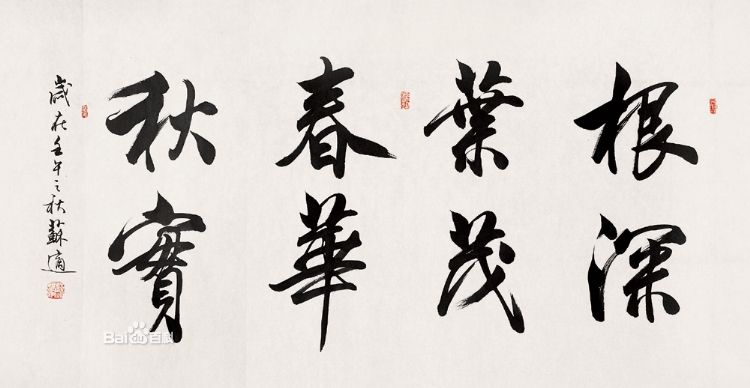 根深
葉茂
春華
秋實
歲在壬午之秋蘇適
Bai百科